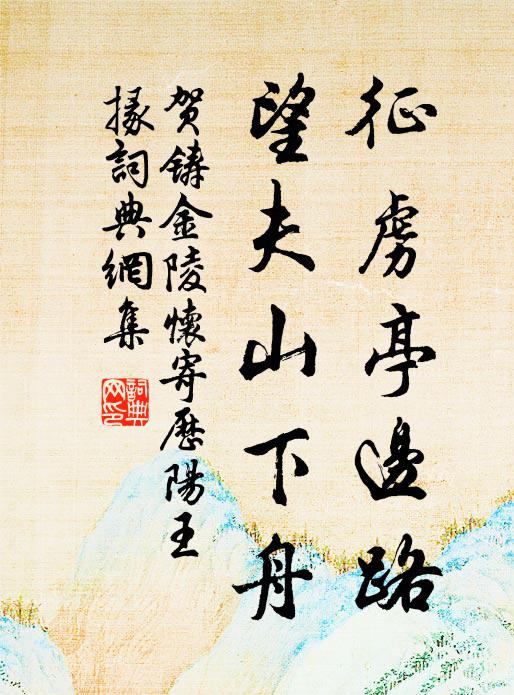 征虏亭邊路
望夫山下舟
贺鑄金陵懷寄歷陽王
掾詞典網集
詞典
网印